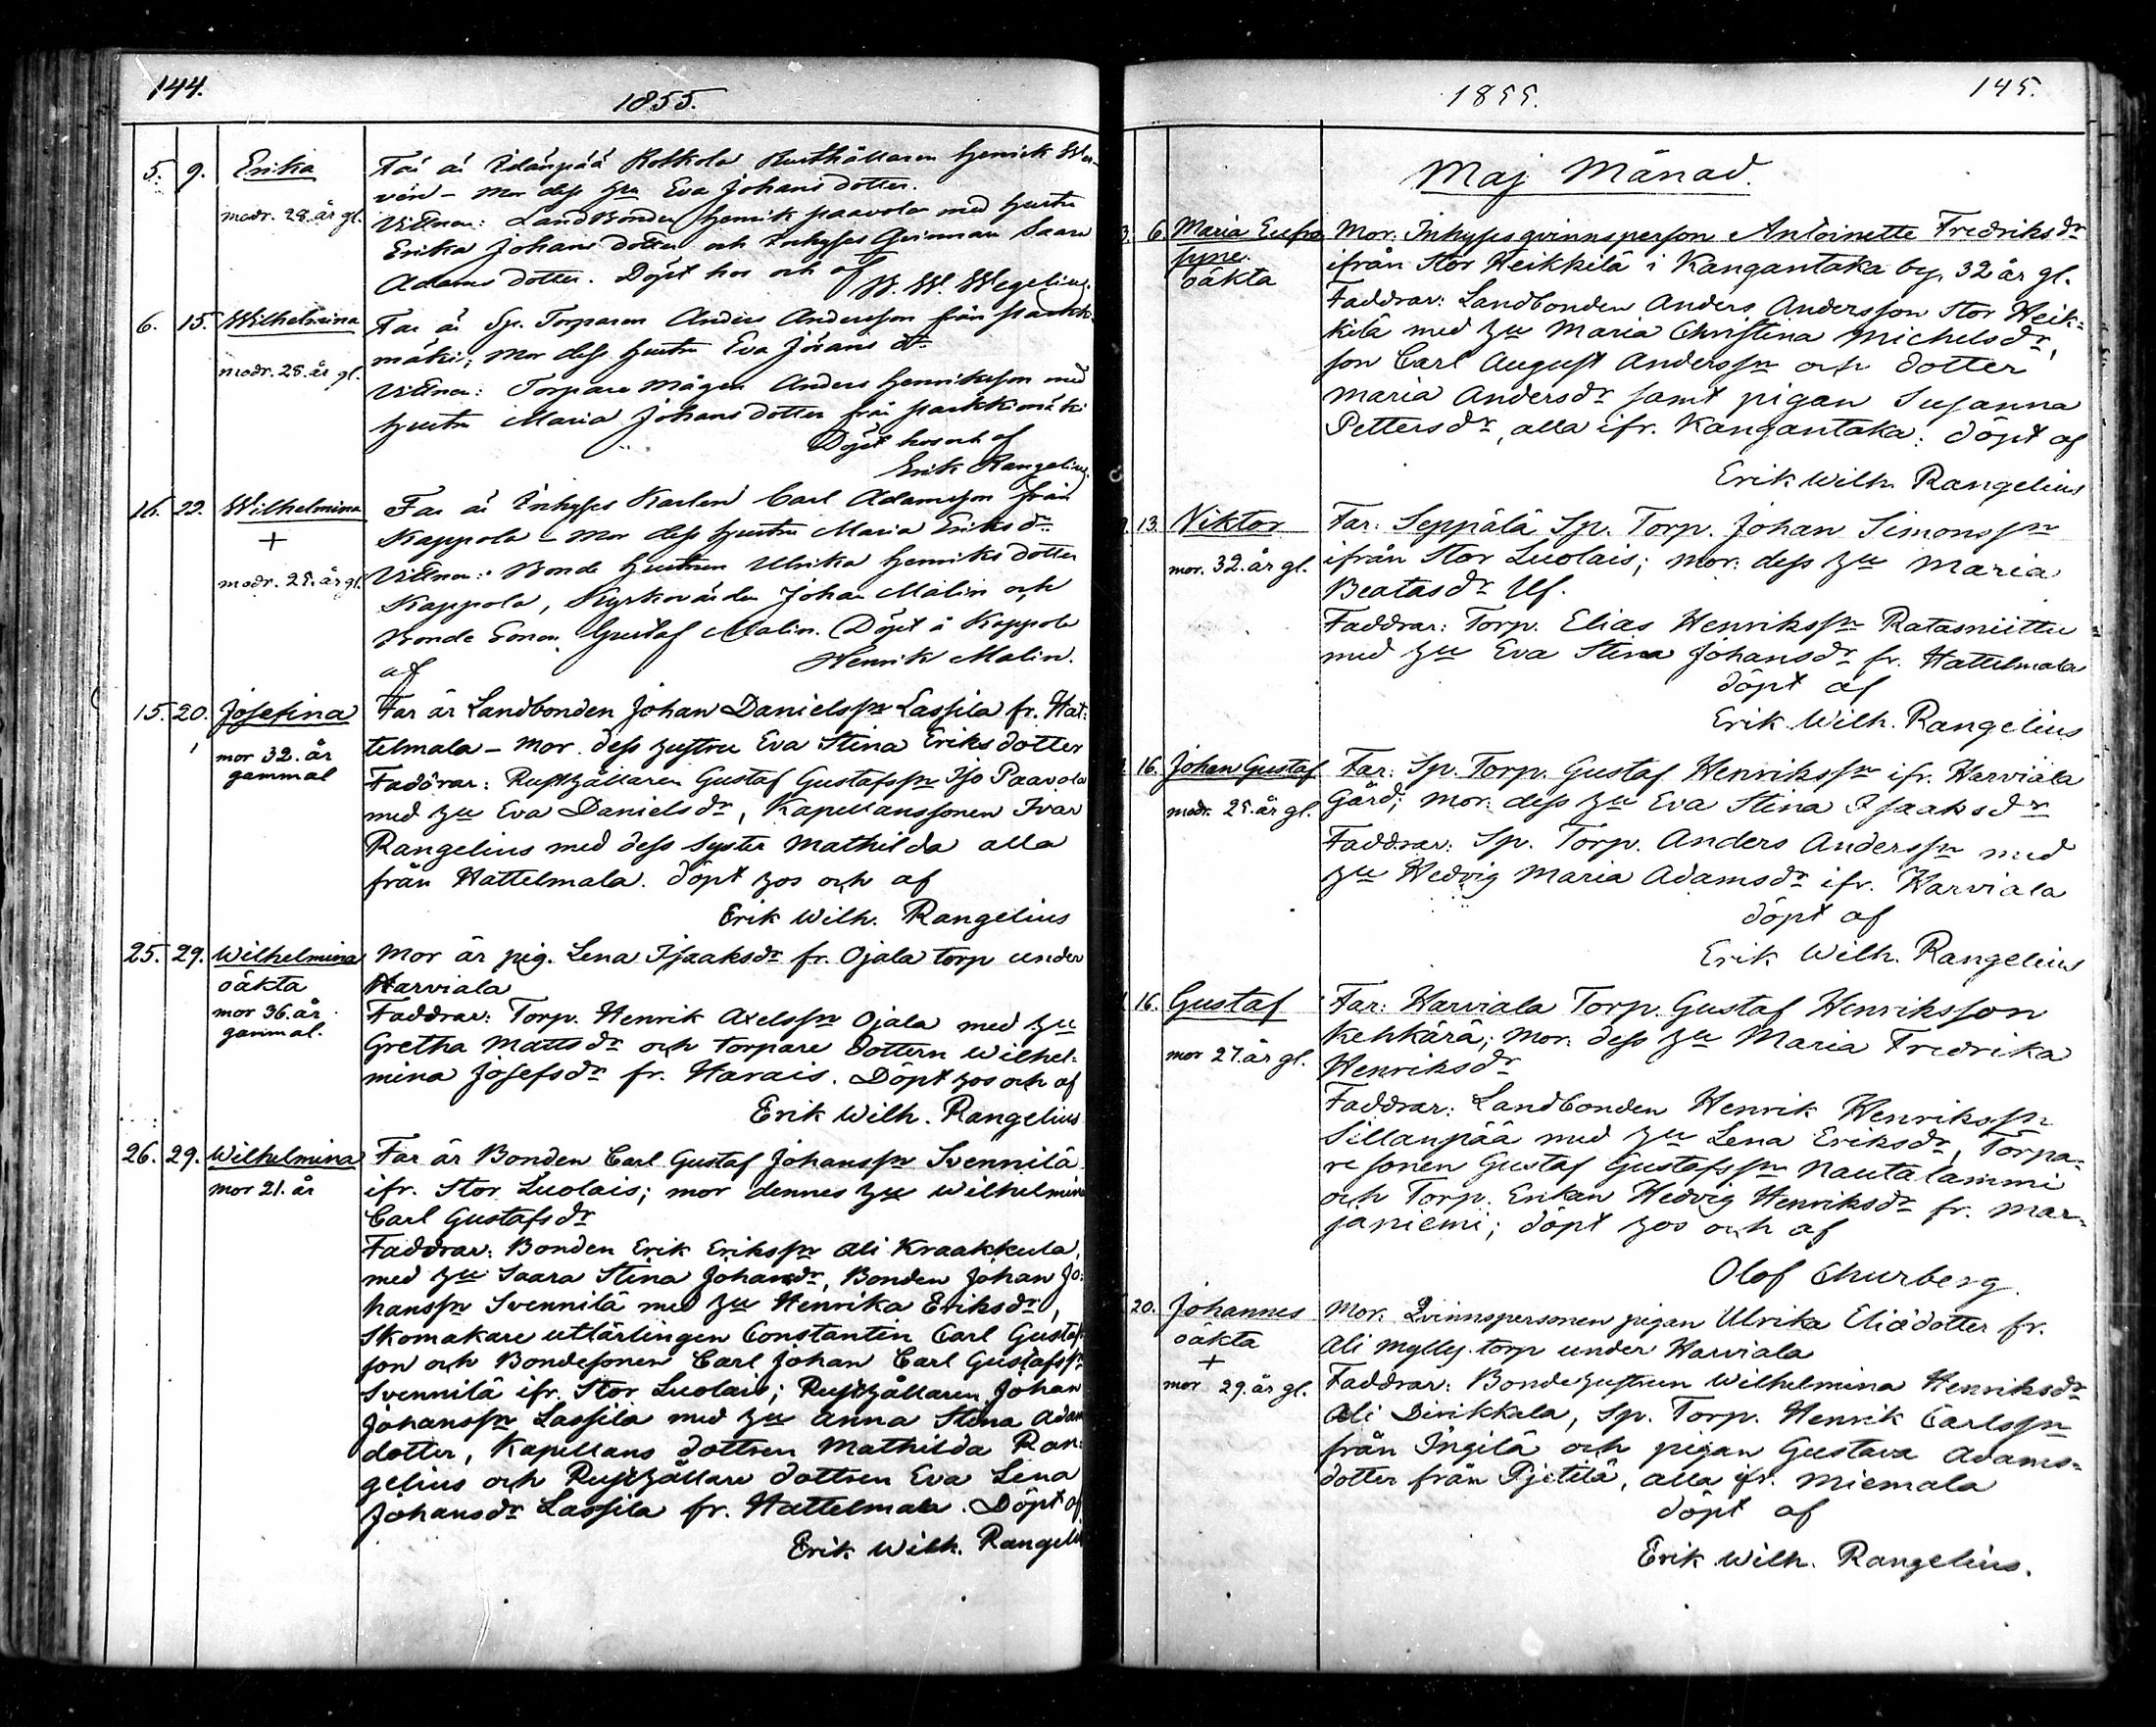 144.
1855.
5. 9. Erika Far är Idänpää Rotkola Rusthållaren Henrick Wer-
vén - Mor dess hu Eva Johansdotter.
modr. 28. år gl. Vittnen: Landbonden Henrik Paavola med hustru
Erika Johansdotter och Inhyses Qvinnan Saara
Adamsdotter. Döpt hos och af
W. W. Wegelius.
6. 15. Wilhelmina Far är Sp. Torparen Anders Andersson från Parkk-
mäki; Mor dess hustru Eva Jörans dr
modr. 28. år gl. Vittnen: Torpare Mågen Anders Henriksson med
hustru Maria Johansdotter från Parkkimäki
Döpt hos och af
Erik Rangelius.
16. 22. Wilhelmina Far är Inhyses Karlen Carl Adamsson från
+ Kappola - Mor dess hustru Maria Eriksdr.
modr. 25. år gl. Vittnen: Bonde hustrun Ulrika Henriksdotter
Kappola, Kyrkovärden Johan Malin och
Bonde Sonen Gustaf Malin. Döpt å Kappola
af Henrik Malin.
15. 20. Josefina Far är Landbonden Johan Danielssn Lassila fr. Hat-
telmala - Mor dess hustru Eva Stina Eriksdotter
mor 32. år
gammal
Faddrar: Rusthållaren Gustaf Gustafssn Iso Paavola
med hu Eva Danielsdr, Kapellanssonen Ivar
Rangelius med dess syster Mathilda alla
från Hattelmala. döpt hos och af
Erik Wilh. Rangelius
25. 29. Wilhelmina Mor är pig. Lena Isaaksdr fr. Ojala torp under
oäkta Harviala
mor 36. år
gammal.
Faddrar: Torp. Henrik Axelssn Ojala med hu
Gretha Mattsdr och torpare dottern Wilhel-
mina Josefsdr fr. Harais. Döpt hos och af
Erik Wilh. Rangelius
26. 29. Wilhelmina Far är Bonden Carl Gustaf Johanssn Svennilä
mor 21. år ifr. Stor Luolais; mor dennes hu Wilhelmina
Carl Gustafsdr
Faddrar: Bonden Erik Erikssn Ali Kraakkula,
med hu Saara Stina Johansdr, Bonden Johan Jo-
hanssn Svennilä med hu Henrika Eriksdr,
Skomakare utlärlingen Constantin Carl Gustafs
son och Bondesonen Carl Johan Carl Gustafssn
Svennilä ifr. Stor Luolais; Rusthållaren Johan
Johanssn Lassila med hu Anna Stina Adam
dotter, Kapellans dottren Mathilda Ran-
gelius och Rusthållare dottren Eva Lena
Johansdr Lassila fr. Hattelmala. Döpt af
Erik Wilh. Rangeli
1855.
145.
Maj Månad.
3. 6. Maria Eufro Mor: Inhysesqvinnsperson Antoinette Fredriksdr
syne. ifrån Stor Heikkilä i Kangantaka by, 32 år gl.
oäkta Faddrar: Landbonden Anders Andersson Stor Heik-
kilä med hu Maria Christina Michelsdr,
son Carl August Anderssn och dotter
Maria Andersdr samt pigan Susanna
Pettersdr, alla ifr. Kangantaka; döpt af
Erik Wilh. Rangelius
13. Viktor Far: Seppälä Sp. Torp. Johan Simonssn
mor. 32. år gl. ifrån Stor Luolais; mor. dess hu Maria
Beatasdr Ulf.
Faddrar: Torp. Elias Henrikssn Ratasniittu
med hu Eva Stina Johansdr fr. Hattelmala
döpt af
Erik Wilh. Rangelius
16. Johan Gustaf Far: Sp. Torp. Gustaf Henrikssn ifr. Harviala
modr. 25. år gl. Gård; Mor: dess hu Eva Stina Isaaksdr
Faddrar: Sp. Torp. Anders Anderssn med
hu Hedvig Maria Adamsdr ifr. Harviala
döpt af
Erik Wilh. Rangelius
16. Gustaf Far: Harviala Torp. Gustaf Henriksson
mor 27. år gl. Kehkärä; mor: dess hu Maria Fredrika
Henriksdr
Faddrar: Landbonden Henrik Henrikssn
Sillanpää med hu Lena Eriksdr, Torpa-
resonen Gustaf Gustafssn Nautalammi
och Torp. Enkan Hedvig Henriksdr fr. Mar-
janiemi; döpt hos och af
Olof Churberg.
20. Johannes Mor: Qvinnspersonen pigan Ulrika Eliädotter fr.
oäkta Ali Mylly. torp under Harviala
+
mor 29. år gl. Faddrar: Bondehustrun Wilhelmina Henriksdr
Ali Dirikkala, Sp. Torp. Henrik Carlssn
från Ingilä och pigan Gustava Adams-
dotter från Pjetilä, alla ifr. Miemala
döpt af
Erik Wilh. Rangelius.